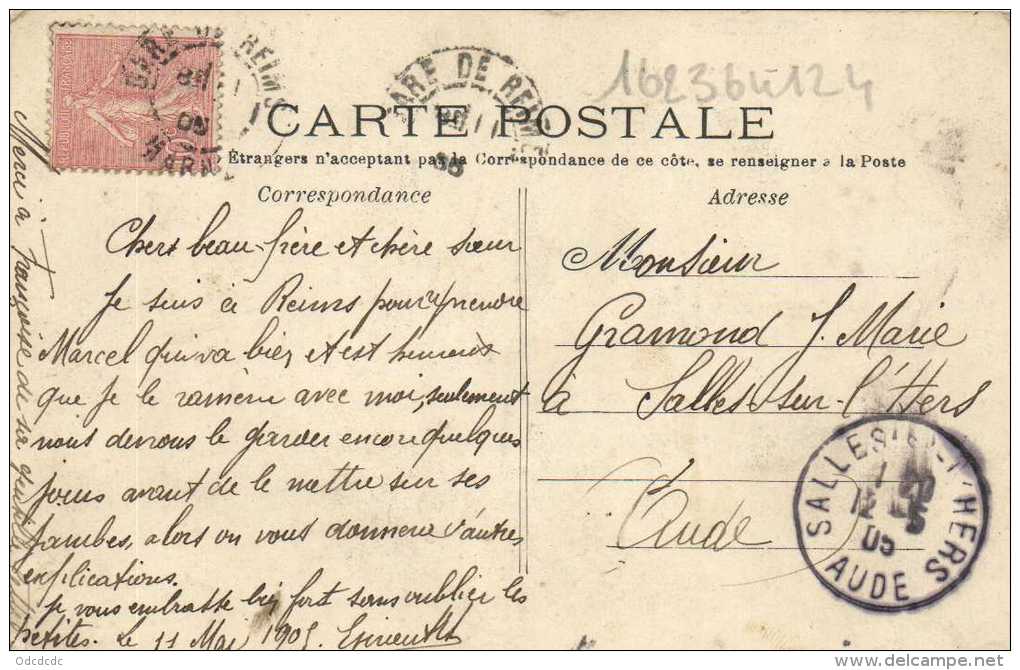 162364124
GARE DE REIMS
MARNE
GARE DE REIMS
CARTE POSTALE
Étrangers n'acceptant pas la Correspondance de ce côté, se renseigner à la Poste
Correspondance
Adresse
Chers beau-frère et chère sœur
Je suis à Reims pour prendre
Marcel qui va bien et est heureux
que je le ramène avec moi, seulement
nous devons le garder encore quelques
jours avant de le mettre sur ses
jambes, alors on vous donnera d'autres
explications.
je vous embrasse bien fort sans oublier les
petites. Le 11 Mai 1905.
Merci à Françoise de sa
Monsieur
Gramond J. Marie
à Salles-sur-l'Hers
Aude
SALLES-SUR-L'HERS
05
AUDE
Odcdcdc
www.delcampe.net